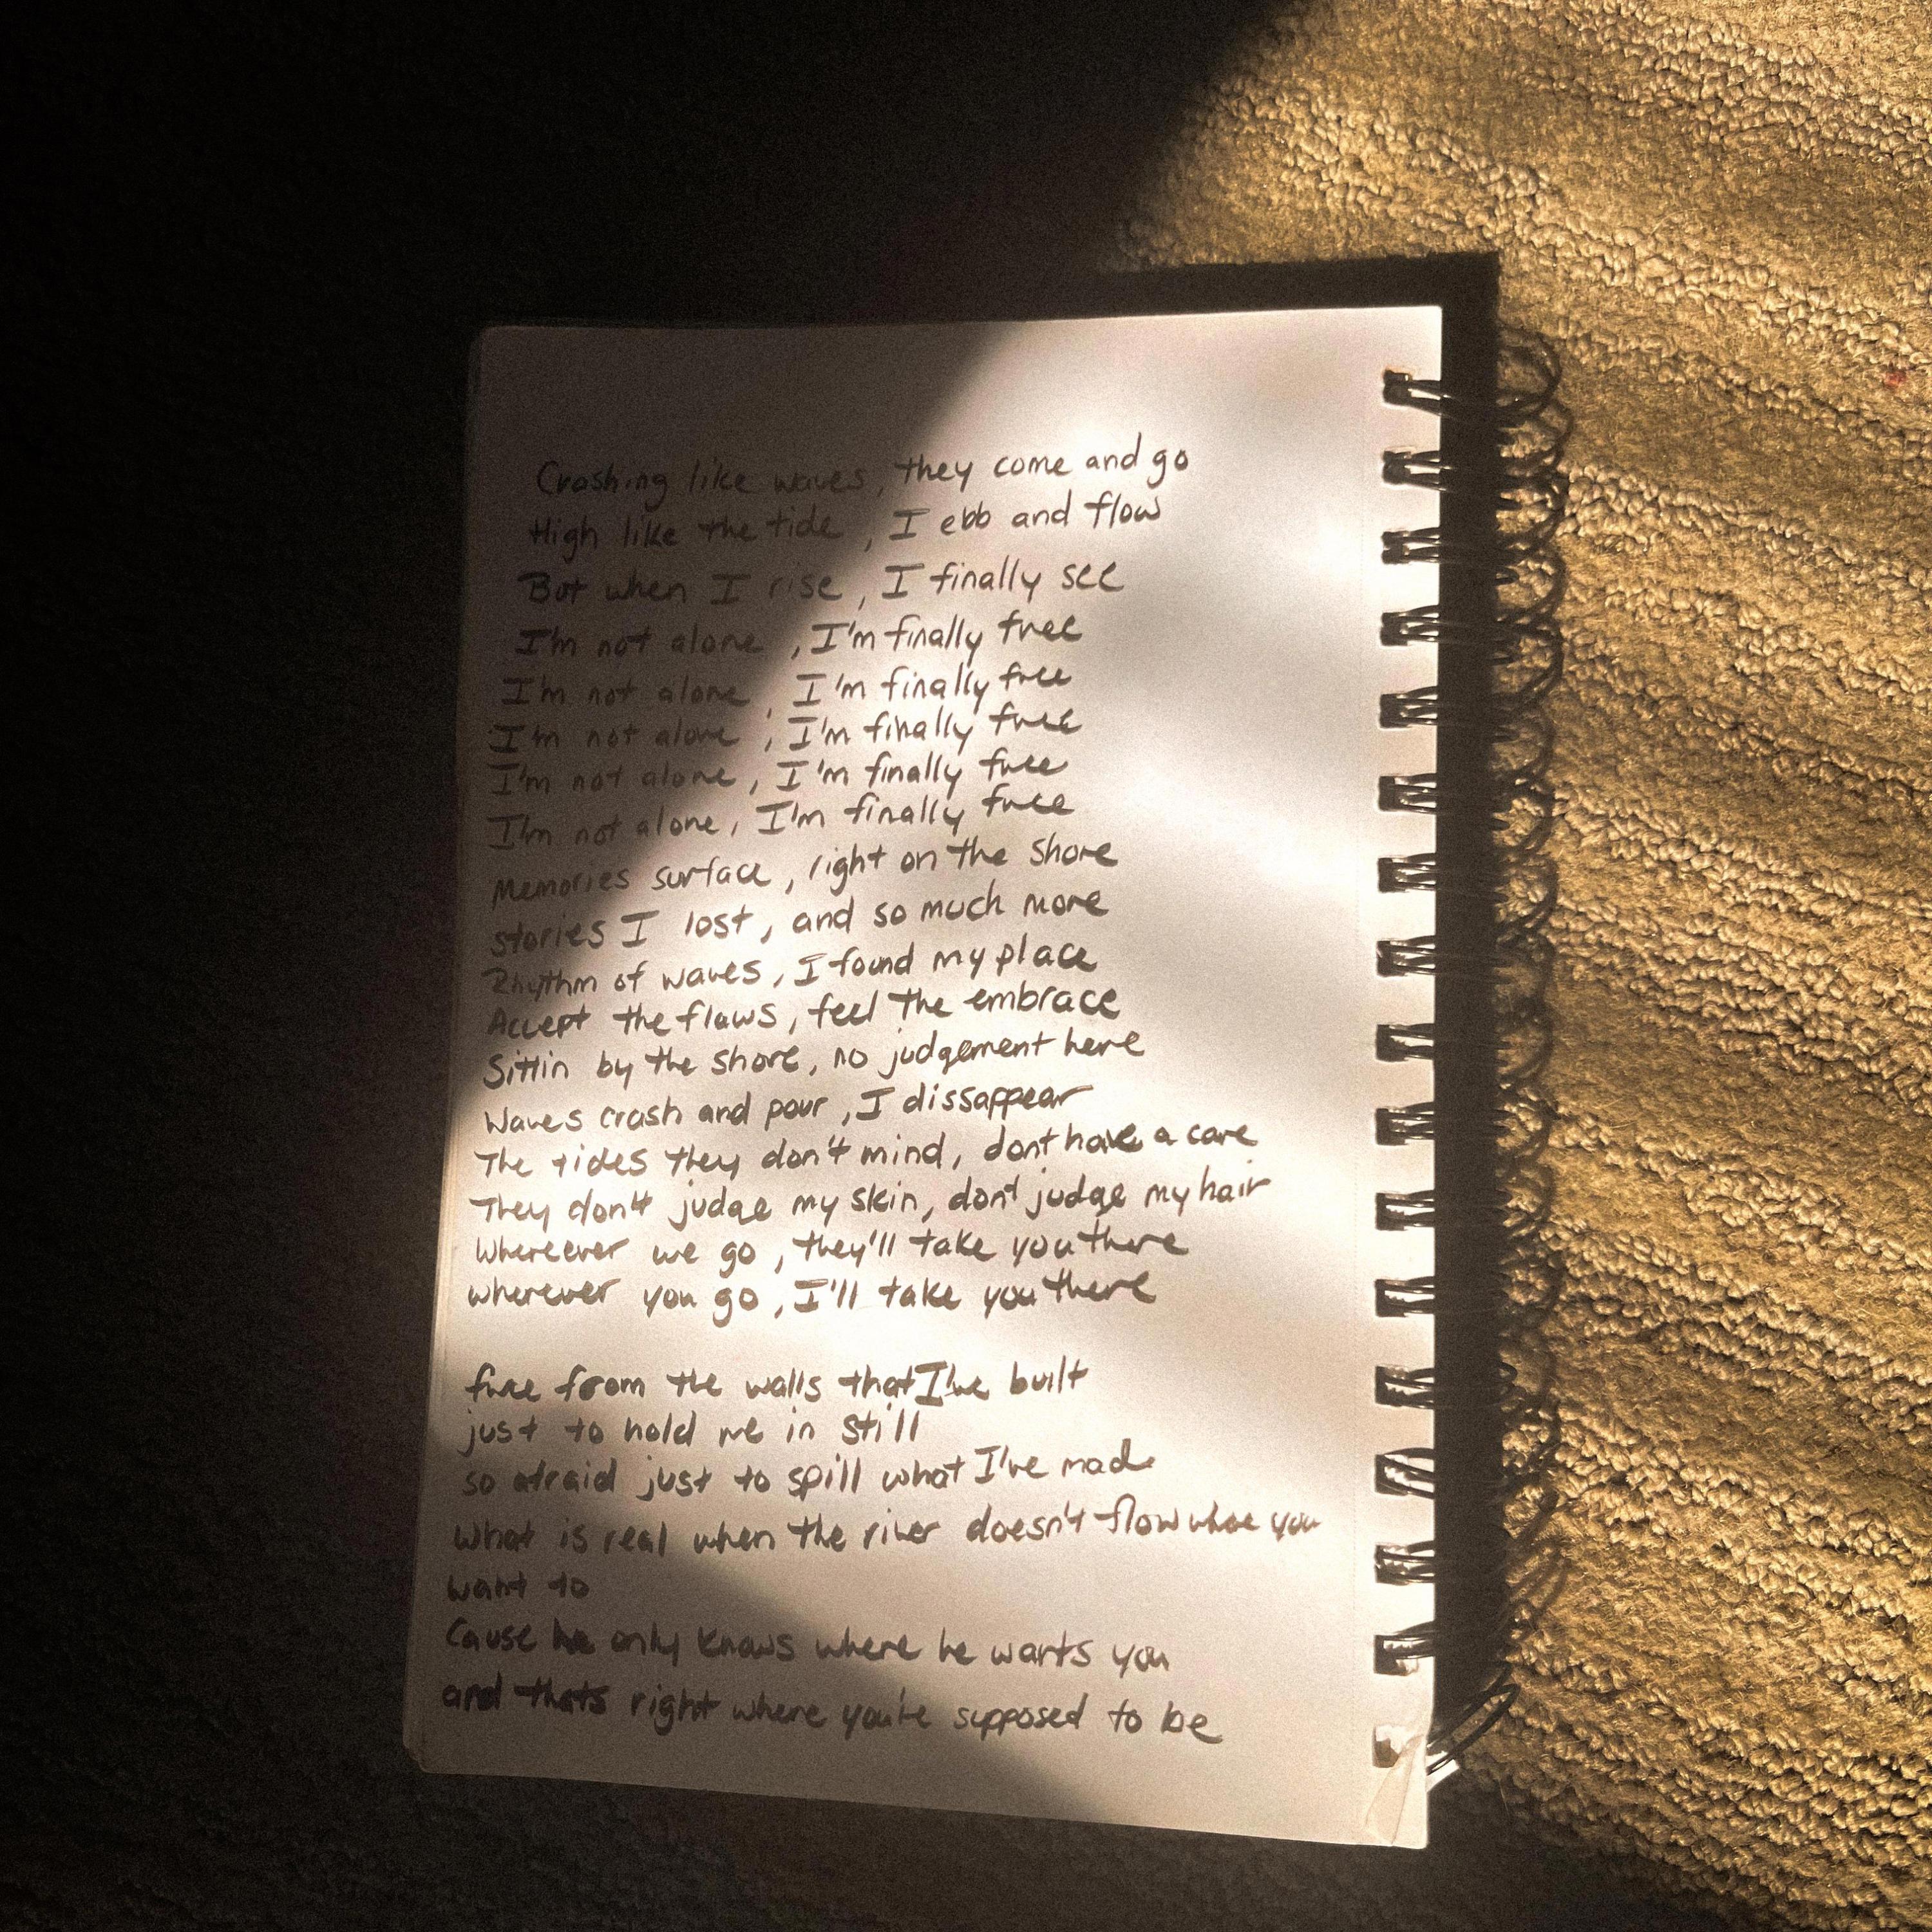 Crashing like waves, they come and go
High like the tide, I ebb and flow
But when I rise, I finally see
I'm not alone, I'm finally free
I'm not alone, I'm finally free
I'm not alone, I'm finally free
I'm not alone, I'm finally free
I'm not alone, I'm finally free
Memories surface, right on the shore
stories I lost, and so much more
Rhythm of waves, I found my place
Accept the flaws, feel the embrace
Sittin by the shore, no judgement here
Waves crash and pour, I dissappear
The tides they don't mind, dont have a care
They don't judge my skin, don't judge my hair
Whereever we go, they'll take you there
wherever you go, I'll take you there
free from the walls that I've built
just to hold me in still
so afraid just to spill what I've made
What is real when the river doesn't flow where you
want to
Cause he only knows where he wants you
and thats right where you're supposed to be